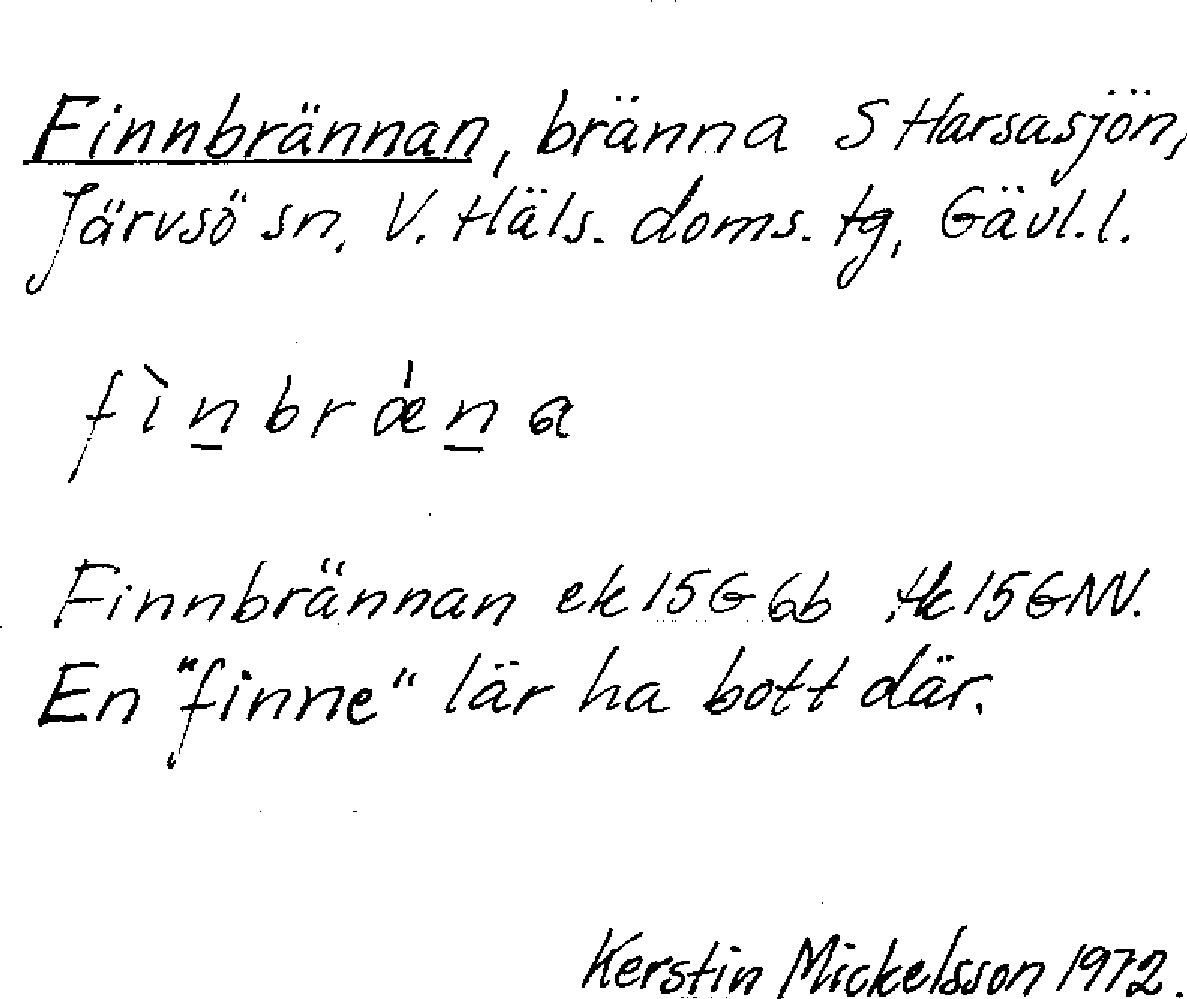 Finnbrännan, bränna S Harsasjön,
Järvsö sn, V. Häls. doms. tg, Gävl. l.
fìn̲bræ̍n̲a
Finnbrännan ek 15G 6b tk 15G NV.
En "finne" lär ha bott där.
Kerstin Mickelsson 1972.